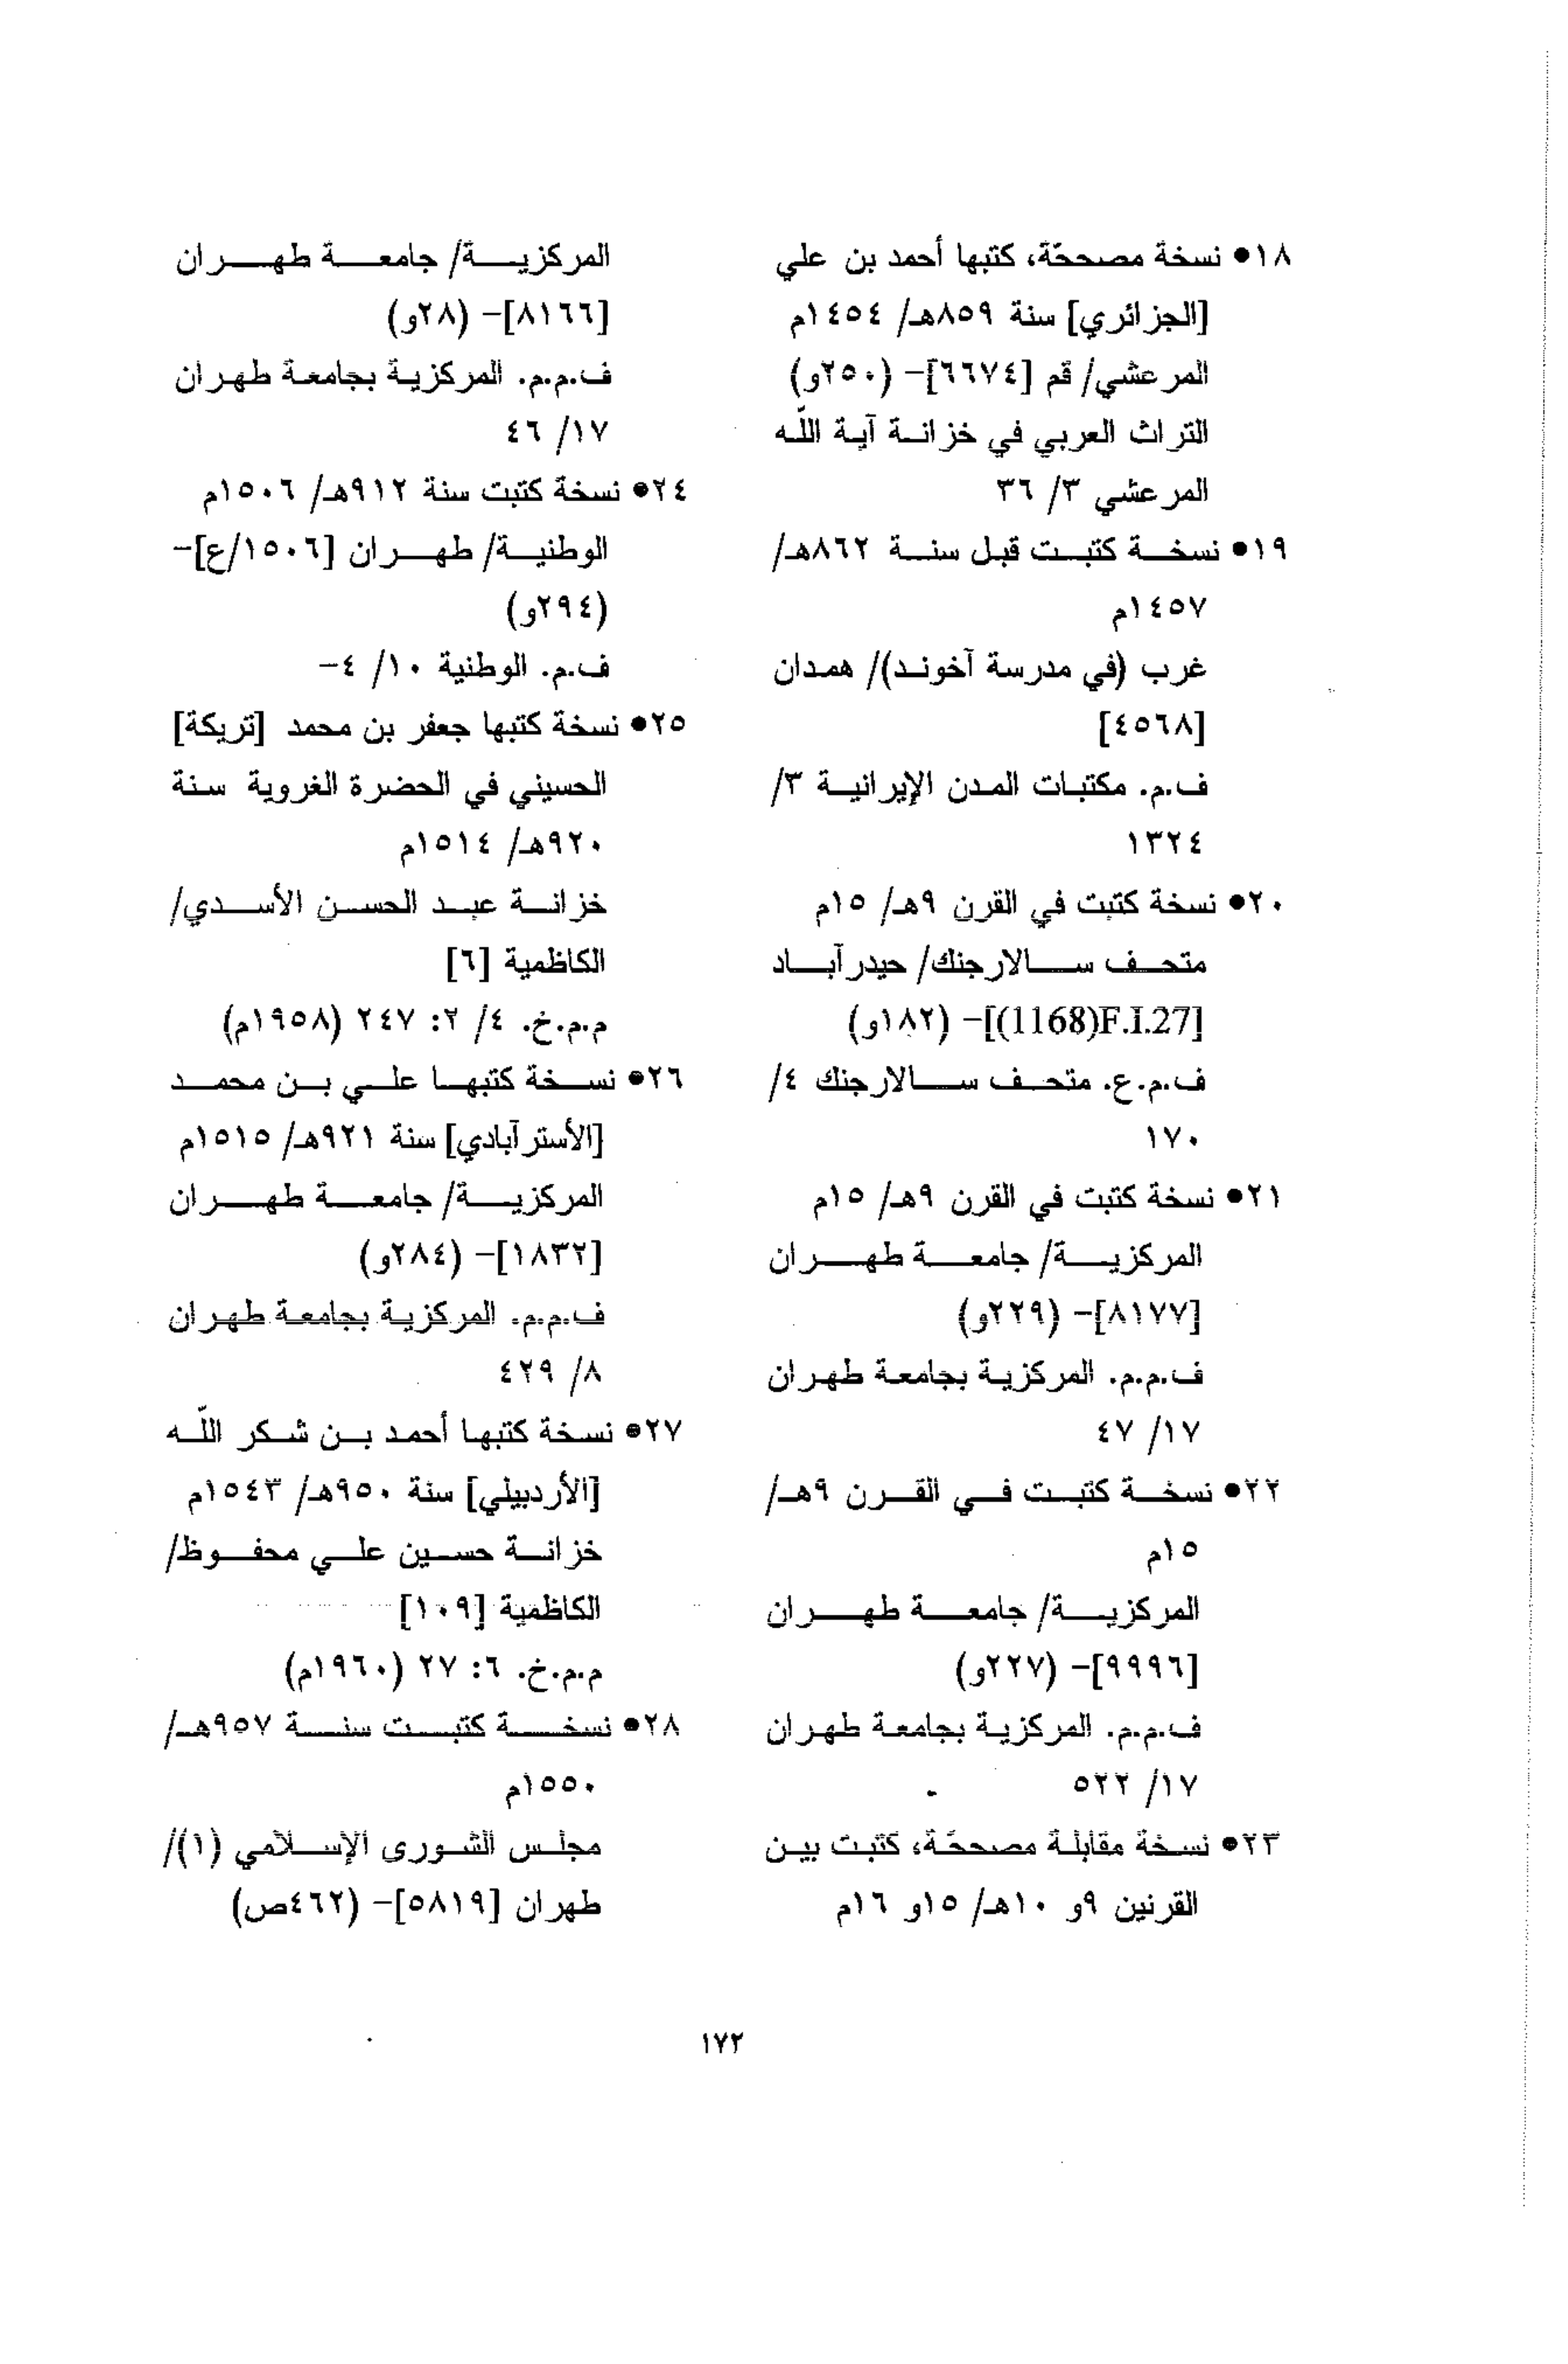 ١٨● نسخة مصححّة، كتبها أحمد بن علي
[الجزائري] سنة ٨٥٩هـ/ ١٤٥٤م
المرعشي/ قم [٦٦٧٤]- (٢٥٠و)
التراث العربي في خزانة آية اللّه
المرعشي ٣/ ٣٦
١٩● نسخة كتبت قبل سنة ٨٦٢هـ/
١٤٥٧م
غرب (في مدرسة آخوند)/ همدان
[٤٥٦٨]
ف.م. مكتبات المدن الإيرانية ٣/
١٣٢٤
٢٠● نسخة كتبت في القرن ٩هـ/ ١٥م
متحف سالارجنك/ حيدرآباد
[(1168)F.I.27]- (١٨٢و)
ف.م.ع. متحف سالارجنك ٤/
١٧٠
٢١● نسخة كتبت في القرن ٩هـ/ ١٥م
المركزية/ جامعة طهران
[٨١٧٧]- (٢٢٩و)
ف.م.م. المركزية بجامعة طهران
١٧/ ٤٧
٢٢● نسخة كتبت في القرن ٩هـ/
١٥م
المركزية/ جامعة طهران
[٩٩٩٦]- (٢٢٧و)
ف.م.م. المركزية بجامعة طهران
١٧/ ٥٢٢
٢٣● نسخة مقابلة مصححّة، كتبت بين
القرنين ٩و ١٠هـ/ ١٥و ١٦م
المركزية/ جامعة طهران
[٨١٦٦]- (٢٨و)
ف.م.م. المركزية بجامعة طهران
١٧/ ٤٦
٢٤● نسخة كتبت سنة ٩١٢هـ/ ١٥٠٦م
الوطنية/ طهران [١٥٠٦/ع]-
(٢٩٤و)
ف.م. الوطنية ١٠/ ٤-
٢٥● نسخة كتبها جعفر بن محمد [تريكة]
الحسيني في الحضرة الغروية سنة
٩٢٠هـ/ ١٥١٤م
خزانة عبد الحسن الأسدي/
الكاظمية [٦]
م.م.خ. ٤/ ٢: ٢٤٧ (١٩٥٨م)
٢٦● نسخة كتبها علي بن محمد
[الأسترآبادي] سنة ٩٢١هـ/ ١٥١٥م
المركزية/ جامعة طهران
[١٨٣٢]- (٢٨٤و)
ف.م.م. المركزية بجامعة طهران
٨/ ٤٢٩
٢٧● نسخة كتبها أحمد بن شكر اللّه
[الأردبيلي] سنة ٩٥٠هـ/ ١٥٤٣م
خزانة حسين علي محفوظ/
الكاظمية [١٠٩]
م.م.خ. ٦: ٢٧ (١٩٦٠م)
٢٨● نسخة كتبت سنة ٩٥٧هـ/
١٥٥٠م
مجلس الشورى الإسلامي (١)/
طهران [٥٨١٩]- (٤٦٢ص)
١٧٢